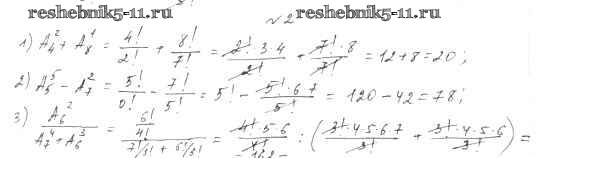 reshebnik5-11.ru №2 reshebnik5-11.ru
1) A₄² + A₈¹ = 4!/2! + 8!/7! = 2!·3·4/2! + 7!·8/7! = 12+8=20;
2) A₅⁵ - A₇² = 5!/0! - 7!/5! = 5! - 5!·6·7/5! = 120-42=78;
3) A₆²/(A₇⁴+A₆³) = (6!/4!)/(7!/3! + 6!/3!) = 4!·5·6/4! : (3!·4·5·6·7/3! + 3!·4·5·6/3!) =